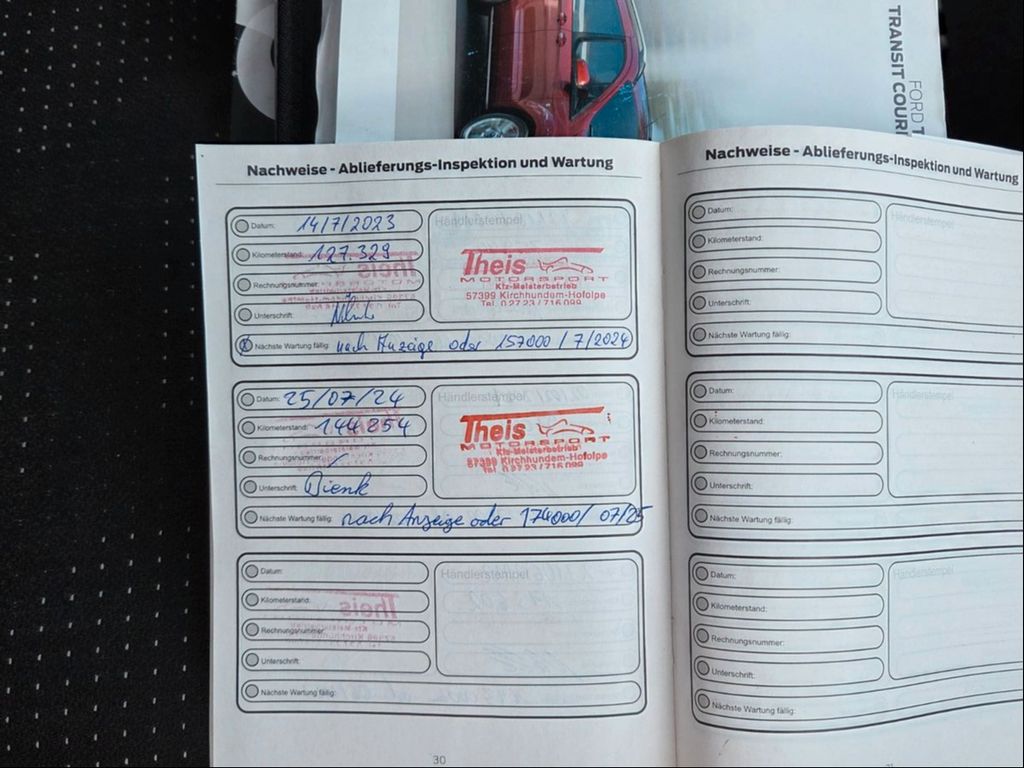 FORD T
TRANSIT COURI
Nachweise - Ablieferungs-Inspektion und Wartung
Datum: 14/7/2023
Kilometerstand: 127.329
Rechnungsnummer:
Unterschrift:
Nächste Wartung fällig: nach Anzeige oder 157000 / 7/2024
Händlerstempel
Theis
MOTORSPORT
Kfz-Meisterbetrieb
57399 Kirchhundem-Hofolpe
Tel. 0 27 23 / 716 099
Datum: 25/07/24
Kilometerstand: 144 854
Rechnungsnummer:
Unterschrift:
Nächste Wartung fällig: nach Anzeige oder 174000/ 07/25
Händlerstempel
Theis
MOTORSPORT
Kfz-Meisterbetrieb
57399 Kirchhundem-Hofolpe
Tel. 0 27 23 / 716 099
Datum:
Kilometerstand:
Rechnungsnummer:
Unterschrift:
Nächste Wartung fällig:
Händlerstempel
30
Nachweise - Ablieferungs-Inspektion und Wartung
Datum:
Kilometerstand:
Rechnungsnummer:
Unterschrift:
Nächste Wartung fällig:
Händlerstempel
Datum:
Kilometerstand:
Rechnungsnummer:
Unterschrift:
Nächste Wartung fällig:
Händlerstempel
Datum:
Kilometerstand:
Rechnungsnummer:
Unterschrift:
Nächste Wartung fällig:
Händlerstempel